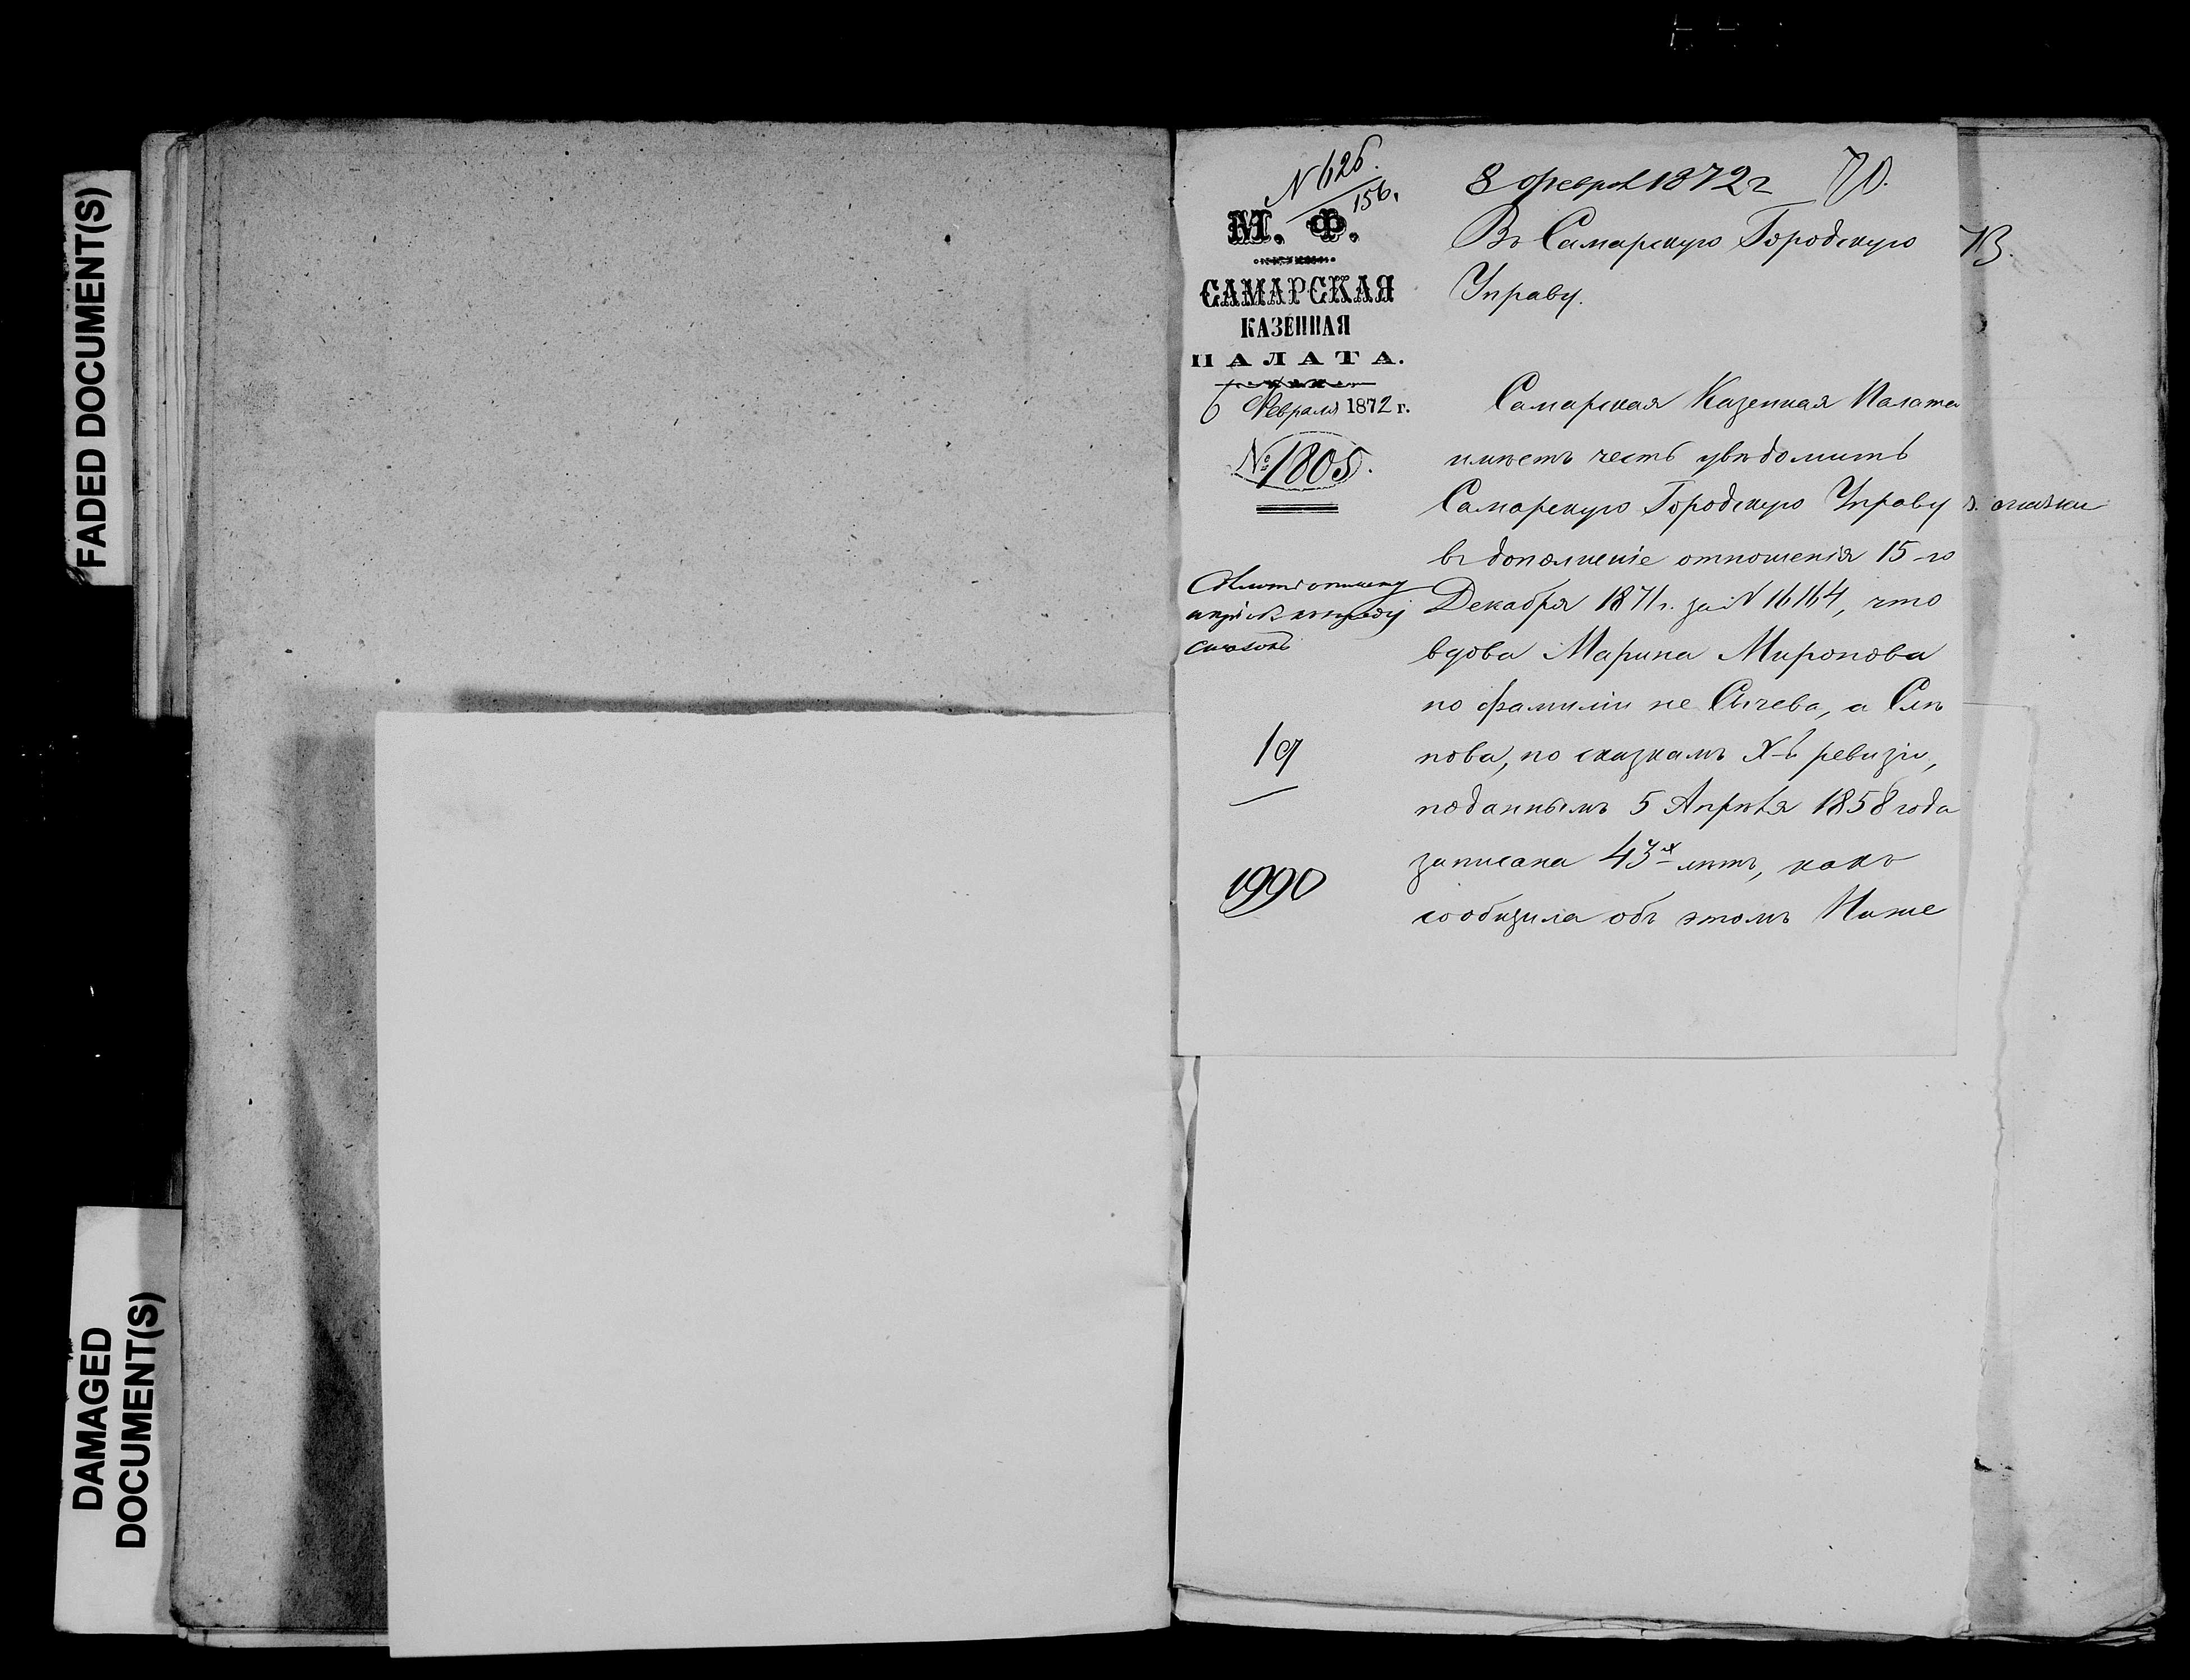 FADED DOCUMENT(S)
DAMAGED
DOCUMENT(S)
N 626.
156.
М. Ф.
САМАРСКАЯ
КАЗЕННАЯ
ПАЛАТА.
6 Февраля 1872 г.
№ 1805.
19
1990
8 Феврал 1872 г
70.
Въ Самарскую Городскую
Управу.
73.
Самарская Казенная Палата
имѣетъ честь увѣдомить
Самарскую Городскую Управу
въ дополненіе отношенія 15-го
Декабря 1871 г. за N 16164, что
вдова Марина Миронова
по фамиліи не Сычева, а Слѣ
пова, по сказкамъ X-й ревизіи,
поданнымъ 5 Апрѣля 1858 года
записана 43-х лѣтъ, какъ
сообщила объ этомъ Ниже